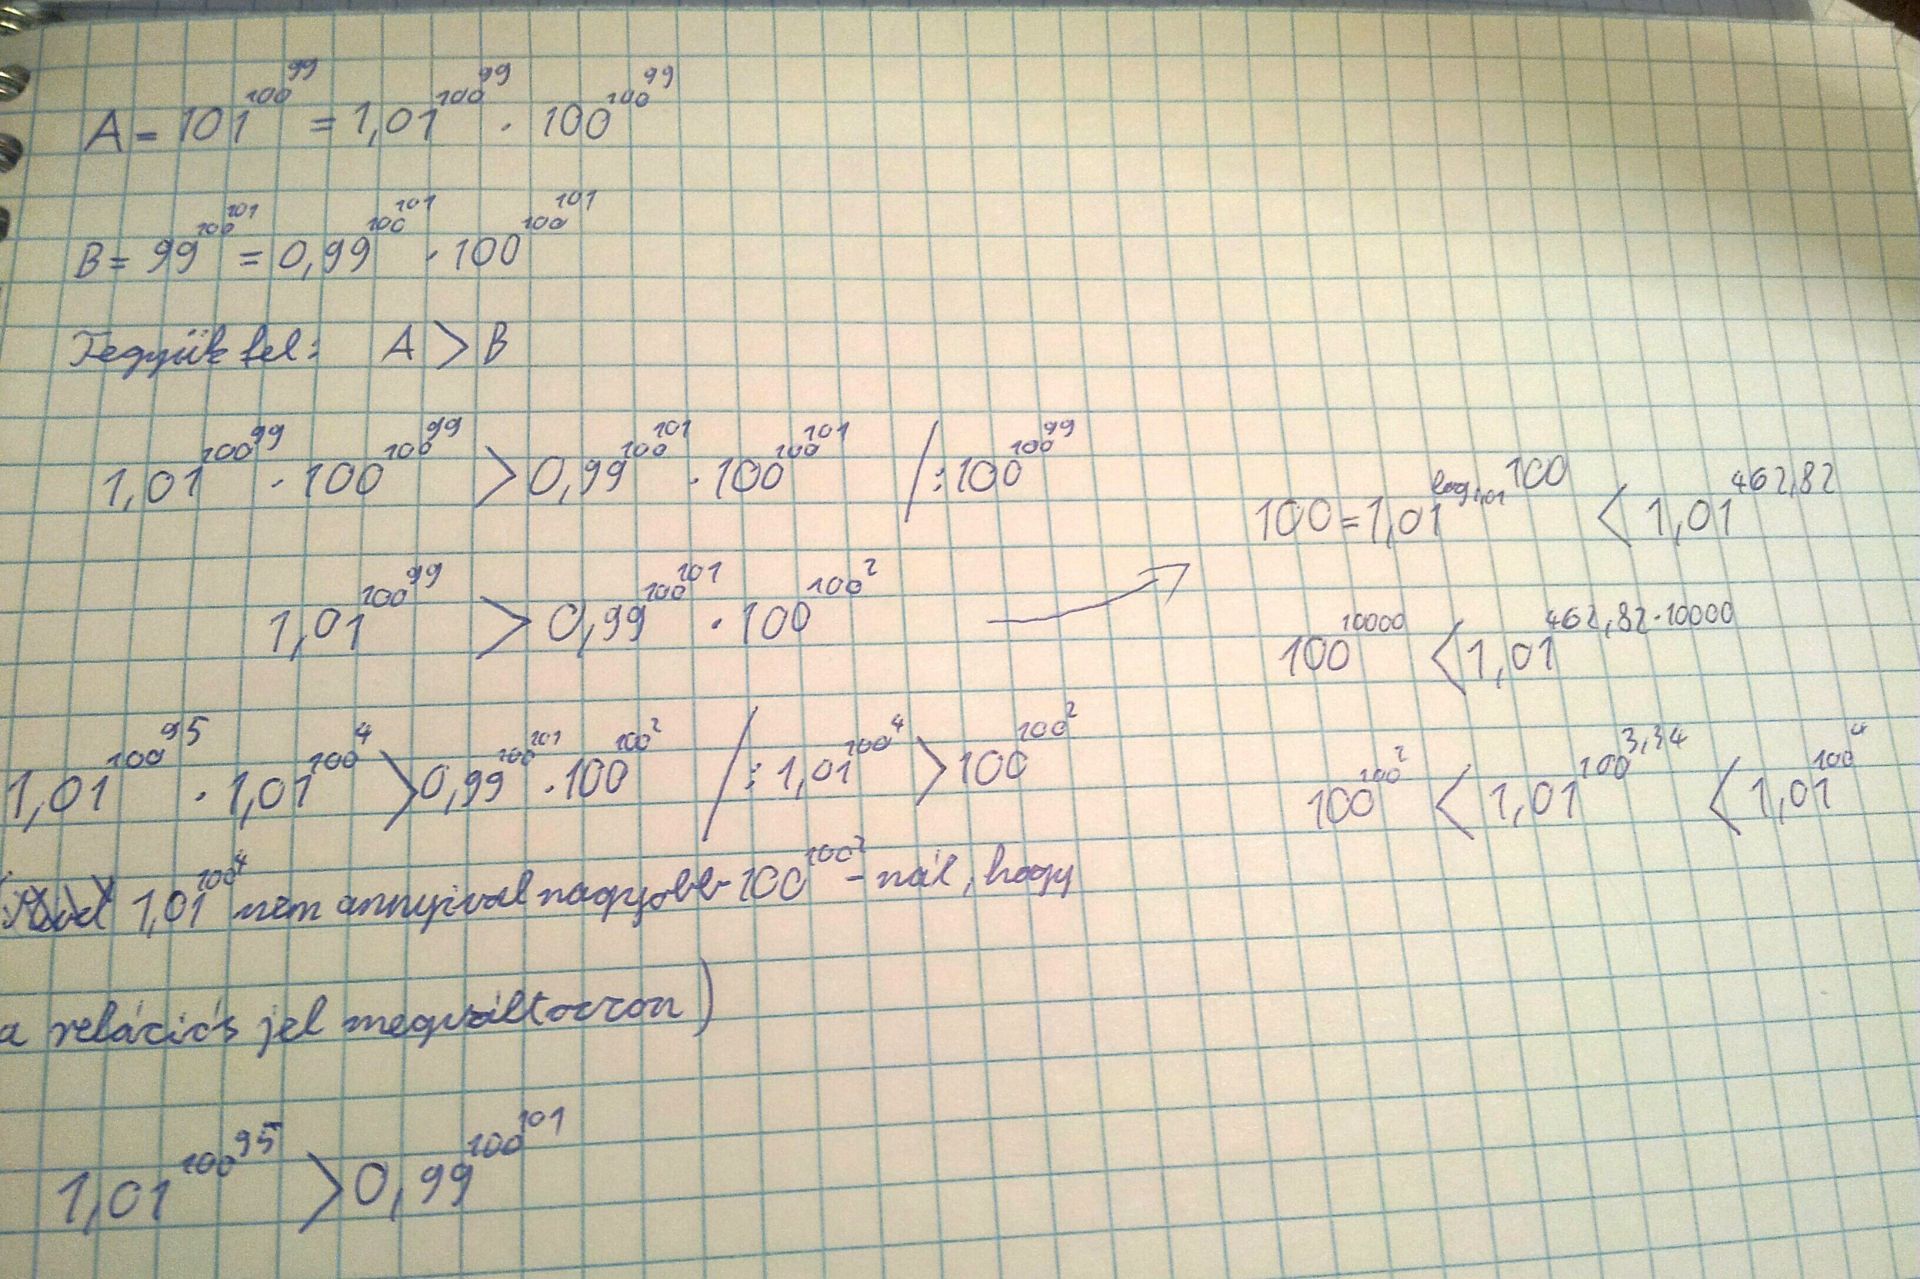 A = 101^100^99 = 1,01^100^99 · 100^100^99
B = 99^100^101 = 0,99^100^101 · 100^100^101
Tegyük fel: A > B
1,01^100^99 · 100^100^99 > 0,99^100^101 · 100^100^101 / : 100^100^99
1,01^100^99 > 0,99^100^101 · 100^100^2
1,01^100^95 · 1,01^100^4 > 0,99^100^101 · 100^100^2 / : 1,01^100^4 > 100^100^2
1,01^100^4 nem annyival nagyobb 100^100^2 - nál, hogy
a relációs jel megváltozzon)
1,01^100^95 > 0,99^100^101
100 = 1,01^log_1,01 100 < 1,01^462,82
100^10000 < 1,01^462,82·10000
100^100^2 < 1,01^100^3,34 < 1,01^100^4